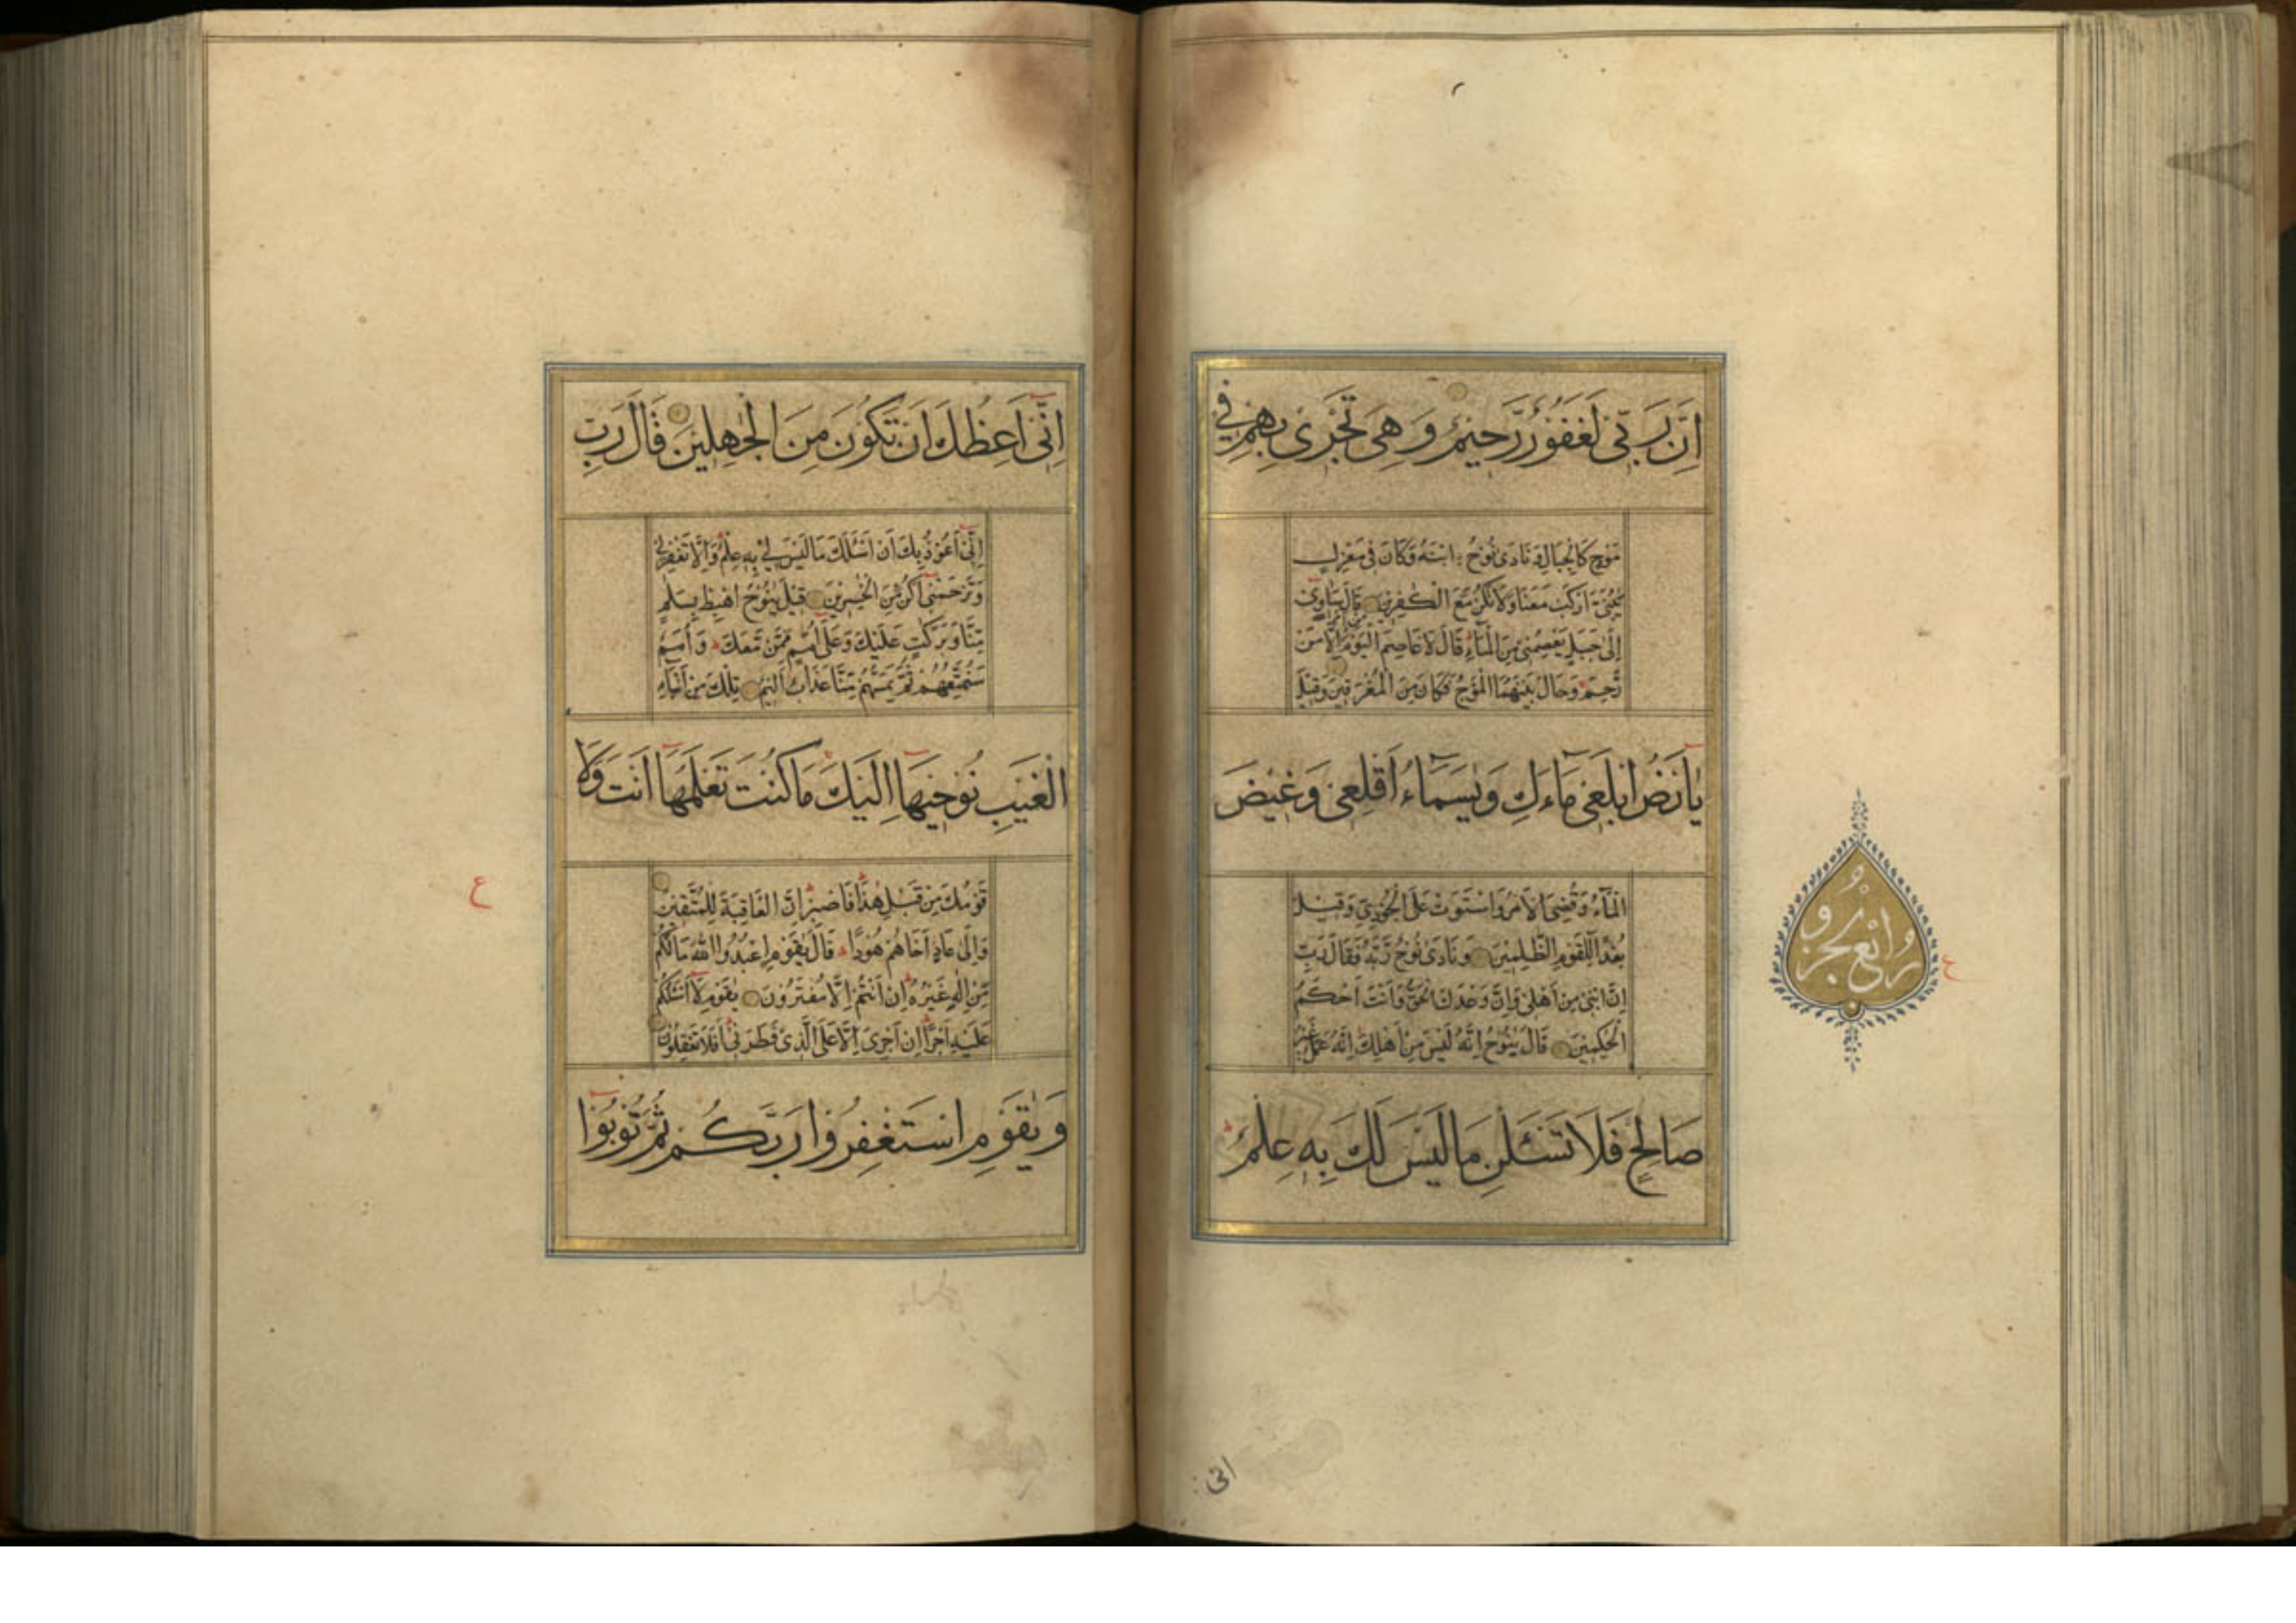 اِنَّ رَبّٖى لَغَفُوْرٌ رَّحِيْمٌ وَهِىَ تَجْرٖى بِهِمْ فِي
مَوْجٍ كَالْجِبَالِ وَنَادَى نُوْحُ ابْنَهُ وَكَانَ فِى مَعْزِلٍ
يٰبُنَىَّ ارْكَبْ مَعَنَا وَلَا تَكُنْ مَعَ الْكٰفِرِيْنَ قَالَ سَاٰوِىْ
اِلٰى جَبَلٍ يَعْصِمُنِىْ مِنَ الْمَآءِ قَالَ لَا عَاصِمَ الْيَوْمَ مِنْ اَمْرِ اللهِ اِلَّا مَنْ
رَّحِمَ وَحَالَ بَيْنَهُمَا الْمَوْجُ فَكَانَ مِنَ الْمُغْرَقِيْنَ وَقِيْلَ
يٰاَرْضُ ابْلَعِىْ مَاءَكِ وَيٰسَمَاءُ اَقْلِعِىْ وَغِيْضَ
الْمَآءُ وَقُضِىَ الْاَمْرُ وَاسْتَوَتْ عَلَى الْجُوْدِىِّ وَقِيْلَ
بُعْدًا لِّلْقَوْمِ الظّٰلِمِيْنَ وَنَادٰى نُوْحٌ رَّبَّهُ فَقَالَ رَبِّ
اِنَّ ابْنِىْ مِنْ اَهْلِىْ وَاِنَّ وَعْدَكَ الْحَقُّ وَاَنْتَ اَحْكَمُ
الْحٰكِمِيْنَ قَالَ يٰنُوْحُ اِنَّهُ لَيْسَ مِنْ اَهْلِكَ اِنَّهُ عَمَلٌ غَيْرُ
صَالِحٍ فَلَا تَسْـَٔلْنِ مَا لَيْسَ لَكَ بِهٖ عِلْمٌ
رُابْعِ جُزْو
ع
انى
اِنِّىْ اَعِظُكَ اَنْ تَكُوْنَ مِنَ الْجٰهِلِيْنَ قَالَ رَبِّ
اِنِّىْ اَعُوْذُ بِكَ اَنْ اَسْـَٔلَكَ مَا لَيْسَ لِىْ بِهٖ عِلْمٌ وَاِلَّا تَغْفِرْ لِىْ
وَتَرْحَمْنِىْ اَكُنْ مِّنَ الْخٰسِرِيْنَ قِيْلَ يٰنُوْحُ اهْبِطْ بِسَلٰمٍ
مِّنَّا وَبَرَكٰتٍ عَلَيْكَ وَعَلٰى اُمَمٍ مِّمَّنْ مَّعَكَ وَاُمَمٌ
سَنُمَتِّعُهُمْ ثُمَّ يَمَسُّهُمْ مِّنَّا عَذَابٌ اَلِيْمٌ تِلْكَ مِنْ اَنْبَاءِ
الْغَيْبِ نُوْحِيْهَا اِلَيْكَ مَا كُنْتَ تَعْلَمُهَا اَنْتَ وَلَا
قَوْمُكَ مِنْ قَبْلِ هٰذَا فَاصْبِرْ اِنَّ الْعَاقِبَةَ لِلْمُتَّقِيْنَ
وَاِلٰى عَادٍ اَخَاهُمْ هُوْدًا قَالَ يٰقَوْمِ اعْبُدُوا اللّٰهَ مَا لَكُمْ
مِّنْ اِلٰهٍ غَيْرُهُ اِنْ اَنْتُمْ اِلَّا مُفْتَرُوْنَ يٰقَوْمِ لَا اَسْـَٔلُكُمْ
عَلَيْهِ اَجْرًا اِنْ اَجْرِىَ اِلَّا عَلَى الَّذِىْ فَطَرَنِىْ اَفَلَا تَعْقِلُوْنَ
وَيٰقَوْمِ اسْتَغْفِرُوْا رَبَّكُمْ ثُمَّ تُوْبُوْا
ع